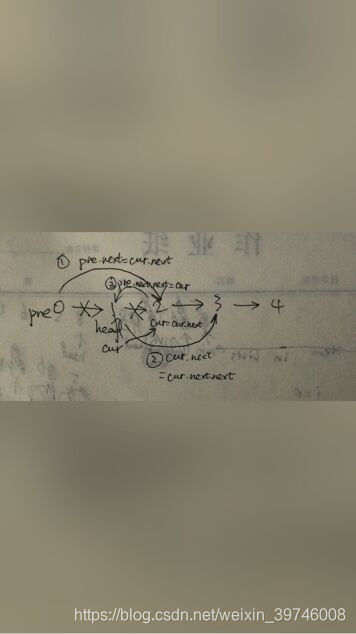 ① pre.next=cur.next
③ pre.next.next=cur
pre 0 → 1 → 2 → 3 → 4
head
cur=cur.next
cur
② cur.next
=cur.next.next
https://blog.csdn.net/weixin_39746008